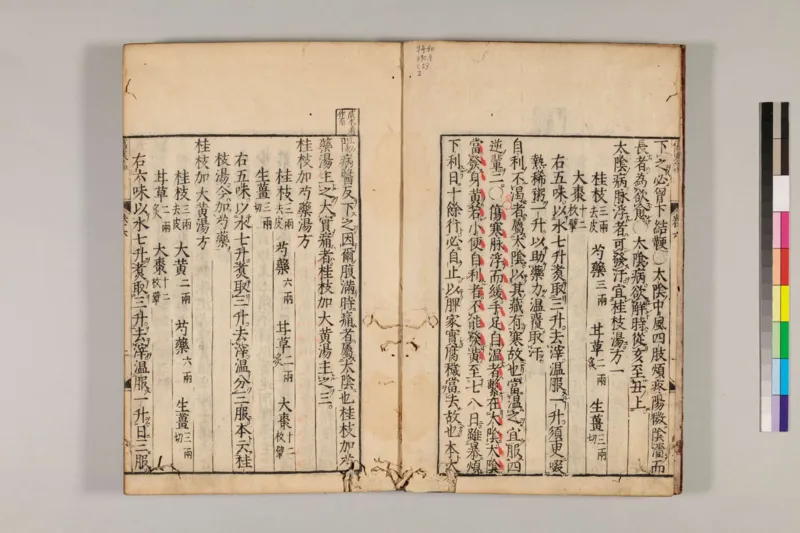 下之必胷下結鞕○太陰中風四肢煩疼陽微陰濇而
長者為欲愈○太陰病欲解時從亥至丑上
太陰病脉浮者可發汗宜桂枝湯方一
桂枝三兩去皮 芍藥三兩 甘草二兩炙 生薑三兩切
大棗十二枚擘
右五味以水七升煑取三升去滓温服一升須臾啜
熱稀粥一升以助藥力温覆取汗
自利不渴者屬太陰以其藏有寒故也當温之宜服四
逆輩二○傷寒脉浮而緩手足自温者繫在太陰太陰
當發身黃若小便自利者不能發黃至七八日雖暴煩
下利日十餘行必自止以脾家實腐穢當去故也本太
陽病醫反下之因爾腹滿時痛者屬太陰也桂枝加芍
藥湯主之大實痛者桂枝加大黄湯主之三
桂枝加芍藥湯方
桂枝三兩去皮 芍藥六兩 甘草二兩炙 大棗十二枚擘
生薑三兩切
右五味以水七升煑取三升去滓温分三服本云桂
枝湯今加芍藥
桂枝加大黄湯方
桂枝三兩去皮 大黄二兩 芍藥六兩 生薑三兩切
甘草二兩炙 大棗十二枚擘
右六味以水七升煑取三升去滓温服一升日三服